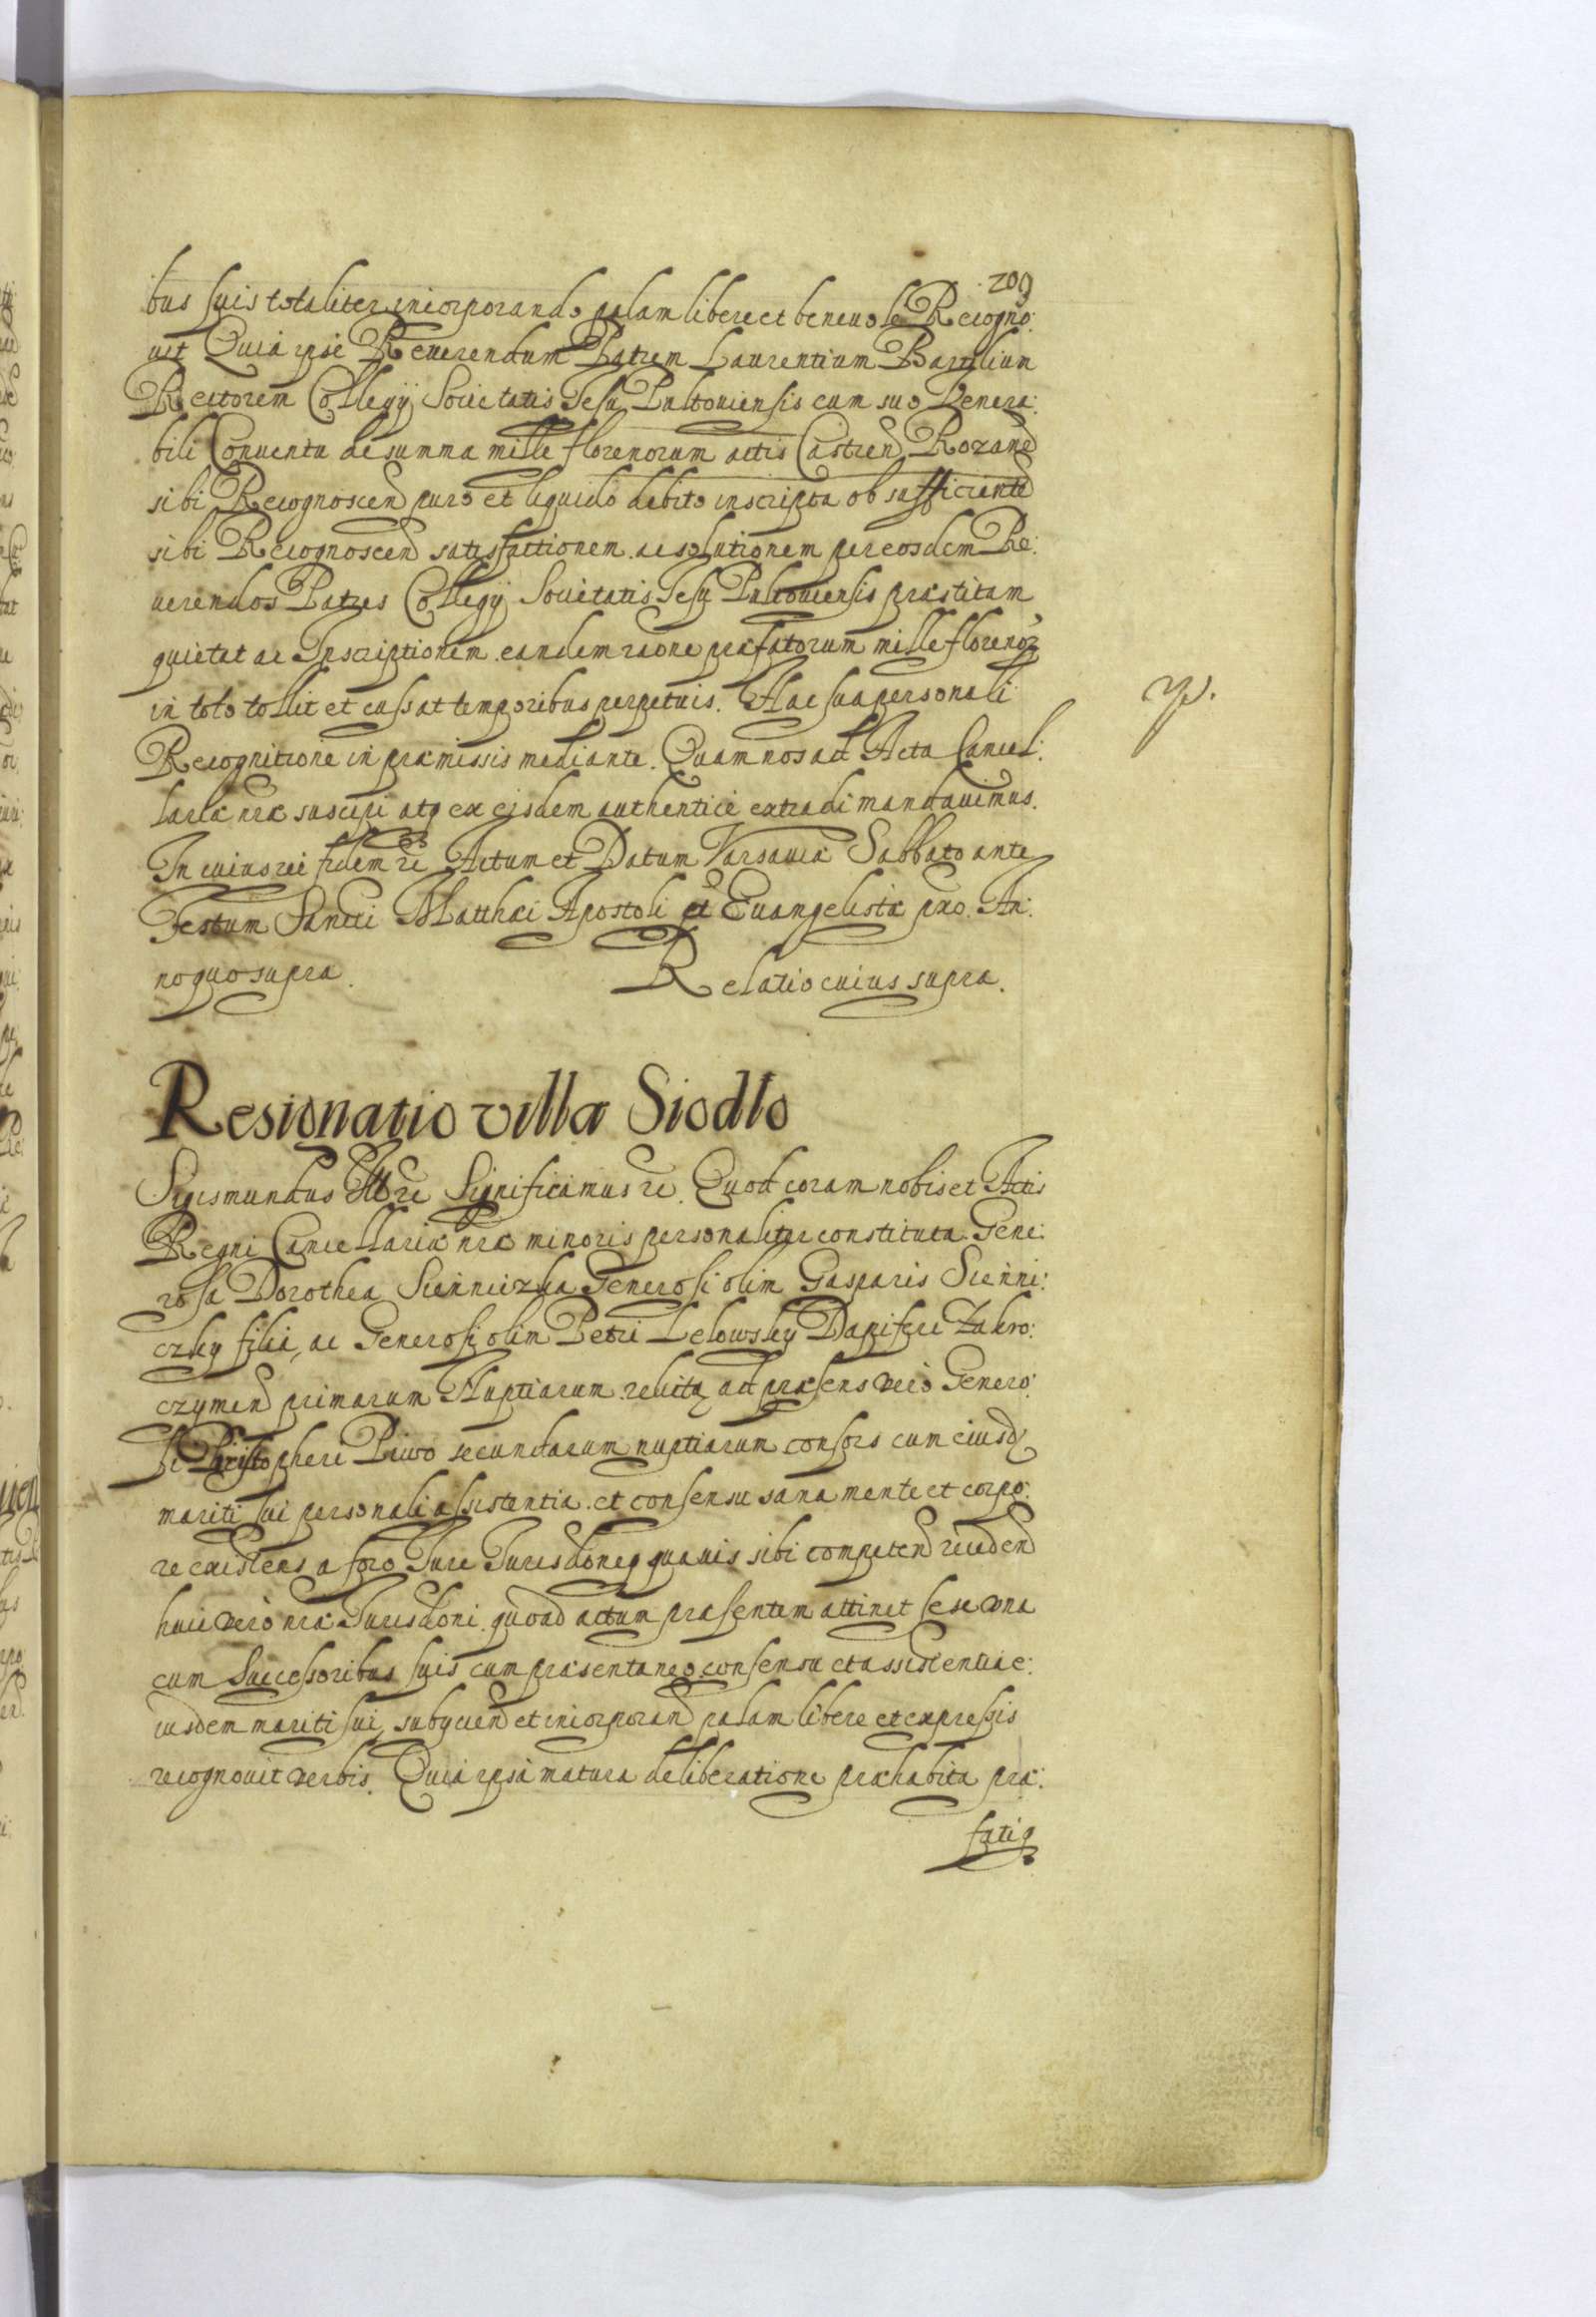 209
bus suis totaliter incorporando palam libere et beneuole Recogno:
uit Quia ipse Reverendum Patrem Laurentium Bartilium
Rectorem Collegy Societatis Jesu Pultouiensis cum suo Venera:
bili Conuentu de summa mille florenorum actis Castren Rozanen
sibi Recognoscen puro et liquido debito inscripta ob sufficientem
sibi Recognoscen satisfactionem ac solutionem per eosdem Re:
uerendos Patres Collegy Societatis Jesu Pultouiensis præstitam
quietat ac Inscriptionem eandem raone præfatorum mille florenor
in toto tollit et cassat temporibus perpetuis. Hac sua personali
Recognitione in præmissis mediante. Quam nos ad Acta Cancel:
lariæ nræ suscipi atq ex eisdem authentice extradi mandauimus.
In cuius rei fidem etc Actum et Datum Varsauiæ Sabbato ante
Festum Sancti Matthæi Apostoli et Euangelistæ pxo. An:
no quo supra. Relatio cuius supra.
Resignatio villæ Siodlo
Sigismundus etc Significamus etc. Quod coram nobis et Actis
Regni Cancellariæ nræ minoris personaliter constituta Gene:
rosa Dorothea Sienniczka Generosi olim Gasparis Sienni:
czky filia, ac Generosi olim Petri Lelowsky Dapiferi Zakro:
czymen primarum Nuptiarum relicta ad præsens vero Genero:
si Christopheri Piwo secundarum nuptiarum consors cum eiusd
mariti sui personali assistentia et consensu sana mente et corpo:
re existens a foro Jure Jurisdoneq quauis sibi competen receden
huic vero nræ Jurisdoni quoad actum præsentem attinet sese una
cum Successoribus suis cum præsentaneo consensu et assistentia e:
iusdem mariti sui subycien et incorporan palam libere et expressis
recognouit verbis. Quia ipsa matura deliberatione præhabita præ:
fatiq